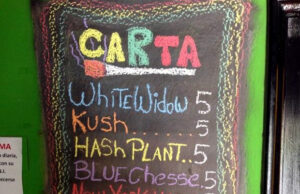 CARTA
WHITEWIDOW 5
KUSH....... 5
HASHPLANT.. 5
BLUECHESSE. 5
MA
diaria,
con su